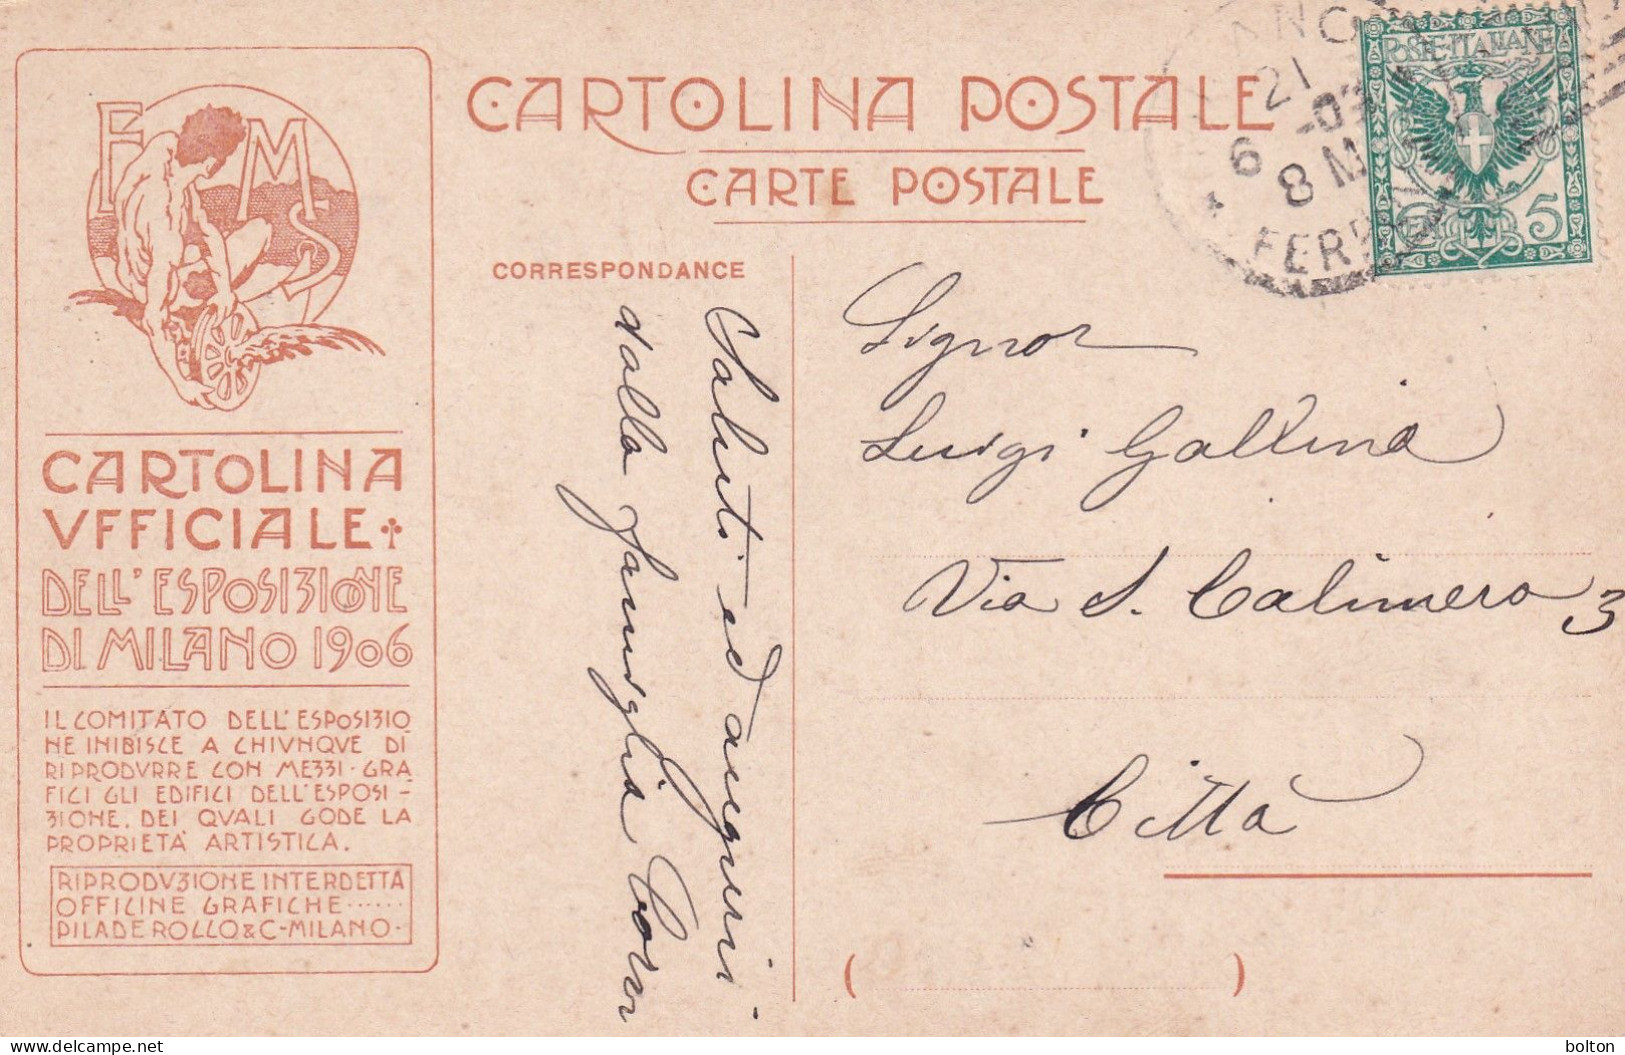 CARTOLINA POSTALE
CARTE POSTALE
CORRESPONDANCE
POSTE·ITALIANE
5
21
6 -07
8 M
F M
S
CARTOLINA
VFFICIALE
DELL'ESPOSIZIONE
DI MILANO 1906
IL COMITATO DELL'ESPOSIZIO
NE INIBISCE A CHIVNQVE DI
RIPRODVRRE CON MEZZI·GRA
FICI GLI EDIFICI DELL'ESPOSI-
ZIONE, DEI QVALI GODE LA
PROPRIETA' ARTISTICA.
RIPRODVZIONE INTERDETTA
OFFICINE GRAFICHE······
PILADE ROCCO & C-MILANO·
Saluti ed auguri
dalla famiglia
Signor
Luigi Gallina
Via S. Calimero 3
Città
( )
delcampe.net
bolton